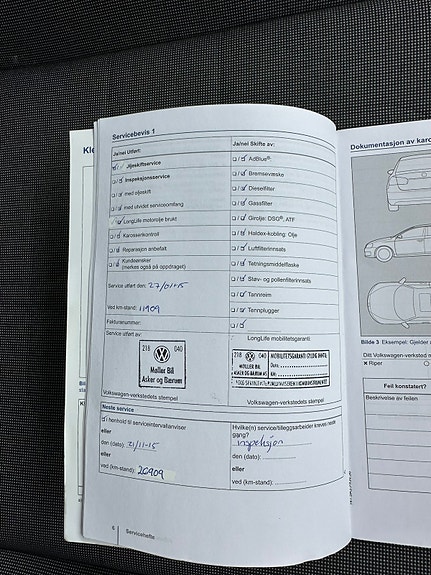 Kle
Servicebevis 1
Ja/nei Utført:
Oljeskiftservice
Inspeksjonsservice
med oljeskift
med utvidet serviceomfang
LongLife motorolje brukt
Karosserikontroll
Reparasjon anbefalt
Kundeønsker
(merkes også på oppdraget)
Service utført den: 27/01-15
Ved km-stand: 11909
Fakturanummer:
Service utført av:
218 040
Møller Bil
Asker og Bærum
Volkswagen-verkstedets stempel
Ja/nei Skifte av:
AdBlue®
Bremsevæske
Dieselfilter
Gassfilter
Girolje: DSG®, ATF
Haldex-kobling: Olje
Luftfilterinnsats
Tetningsmiddelflaske
Støv- og pollenfilterinnsats
Tannreim
Tennplugger
LongLife mobilitetsgaranti:
218 040
MØLLER BIL
ASKER OG BÆRUM AS
MOBILITETSGARANTI GYLDIG INNTIL
Dato:
KM.
Volkswagen-verkstedets stempel
Neste service
I henhold til serviceintervallanviser
eller
den (dato): 21/11-15
eller
ved (km-stand): 20909
Hvilke(n) service/tilleggsarbeider kreves neste
gang?
inspeksjon
den (dato):
eller
ved (km-stand):
6 Servicehefte
Dokumentasjon av karo
Bilde 3 Eksempel: Gjelder
Ditt Volkswagen-verksted
Riper
Feil konstatert?
Beskrivelse av feilen